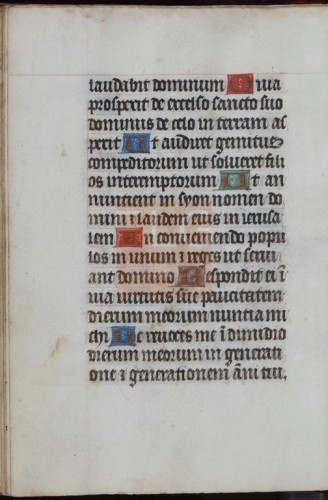 laudabit dominum Quia
prospexit de excelso sancto suo
dominus de celo in terram as
pexit Ut audiret gemitus
compeditorum ut solveret fili
os interemptorum Ut an
nuncient in syon nomen do
mini ⁊ laudem eius in ierusa
lem In conveniendo popu
los in unum ⁊ reges ut servi
ant domino Respondit ei ī
via virtutis sue paucitatem
dierum meorum nuncia mi
chi Ne revoces me ī dimidio
dierum meorum in generati
one ⁊ generationem āni tui.